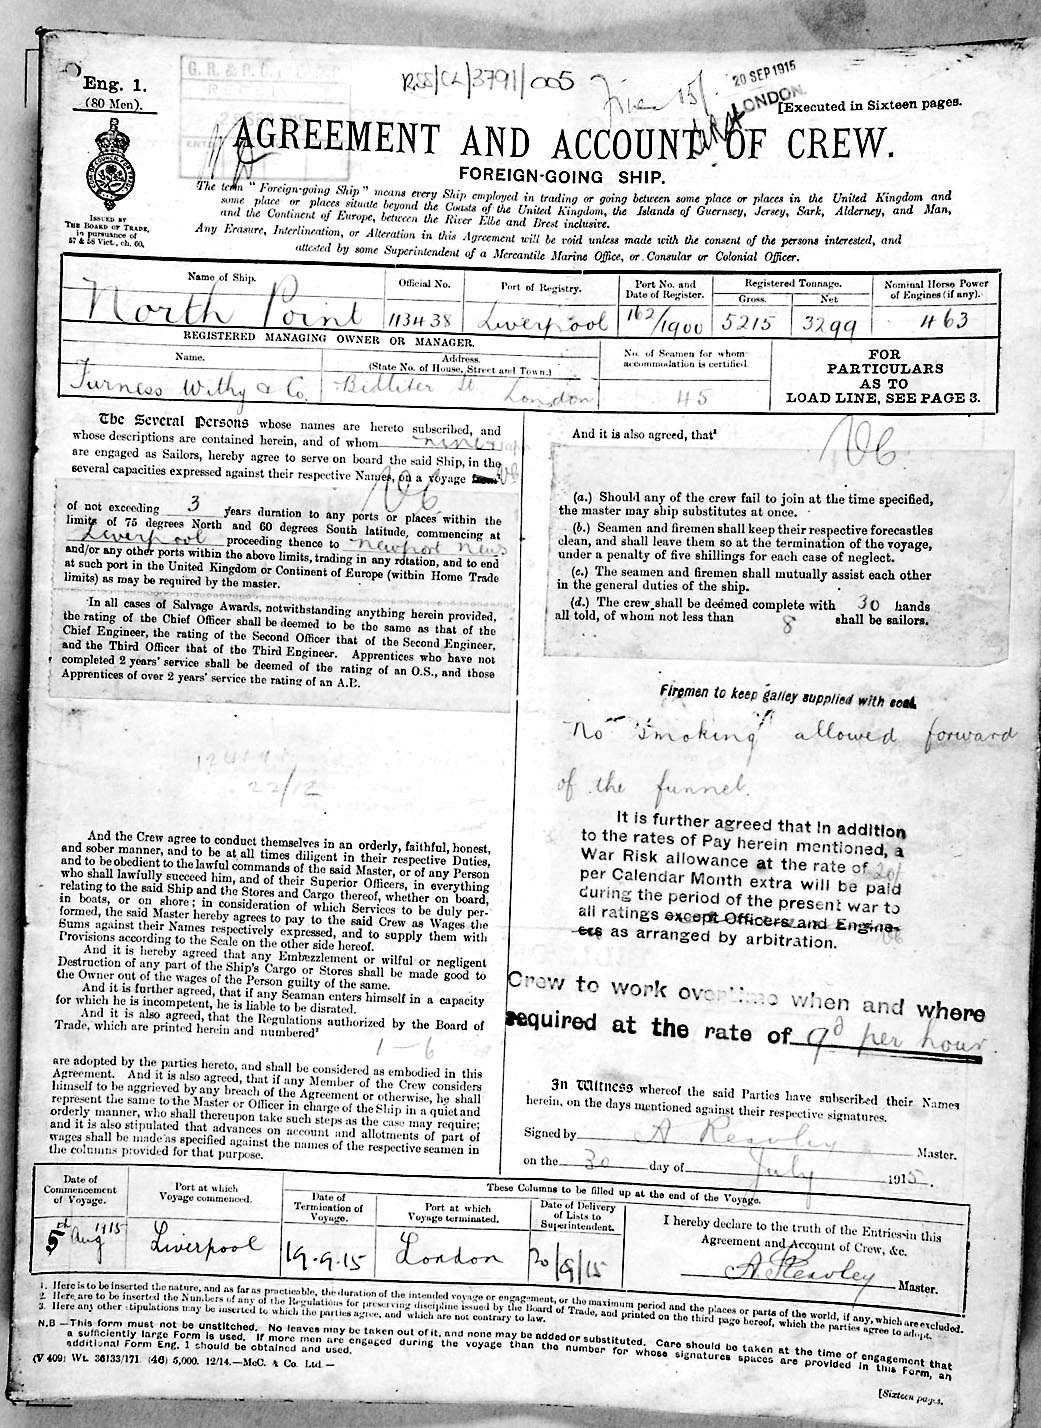 Eng. 1.
(80 Men).
RSS/CL/3791/005
20 SEP 1915
LONDON
[Executed in Sixteen pages.
AGREEMENT AND ACCOUNT OF CREW.
FOREIGN-GOING SHIP.
ISSUED BY
THE BOARD OF TRADE,
in pursuance of
57 & 58 Vict., ch. 60.
The term "Foreign-going Ship" means every Ship employed in trading or going between some place or places in the United Kingdom and
some place or places situate beyond the Coasts of the United Kingdom, the Islands of Guernsey, Jersey, Sark, Alderney, and Man,
and the Continent of Europe, between the River Elbe and Brest inclusive.
Any Erasure, Interlineation, or Alteration in this Agreement will be void unless made with the consent of the persons interested, and
attested by some Superintendent of a Mercantile Marine Office, or Consular or Colonial Officer.
Name of Ship.
Official No.
Port of Registry.
Port No. and
Date of Register.
Registered Tonnage.
Gross.
Net
Nominal Horse Power
of Engines (if any).
North Point
113438
Liverpool
162/1900
5215
3299
463
REGISTERED MANAGING OWNER OR MANAGER.
Name.
Address.
(State No. of House, Street and Town.)
No. of Seamen for whom
accommodation is certified.
FOR
PARTICULARS
AS TO
LOAD LINE, SEE PAGE 3.
Furness Withy & Co.
Billiter St London
45
The Several Persons whose names are hereto subscribed, and
whose descriptions are contained herein, and of whom
are engaged as Sailors, hereby agree to serve on board the said Ship, in the
several capacities expressed against their respective Names, on a voyage
of not exceeding 3 years duration to any ports or places within the
limits of 75 degrees North and 60 degrees South latitude, commencing at
Liverpool proceeding thence to Newport News
and/or any other ports within the above limits, trading in any rotation, and to end
at such port in the United Kingdom or Continent of Europe (within Home Trade
limits) as may be required by the master.
In all cases of Salvage Awards, notwithstanding anything herein provided,
the rating of the Chief Officer shall be deemed to be the same as that of the
Chief Engineer, the rating of the Second Officer that of the Second Engineer,
and the Third Officer that of the Third Engineer. Apprentices who have not
completed 2 years' service shall be deemed of the rating of an O.S., and those
Apprentices of over 2 years' service the rating of an A.B.
22/12
And the Crew agree to conduct themselves in an orderly, faithful, honest,
and sober manner, and to be at all times diligent in their respective Duties,
and to be obedient to the lawful commands of the said Master, or of any Person
who shall lawfully succeed him, and of their Superior Officers, in everything
relating to the said Ship and the Stores and Cargo thereof, whether on board,
in boats, or on shore; in consideration of which Services to be duly per-
formed, the said Master hereby agrees to pay to the said Crew as Wages the
Sums against their Names respectively expressed, and to supply them with
Provisions according to the Scale on the other side hereof.
And it is hereby agreed that any Embezzlement or wilful or negligent
Destruction of any part of the Ship's Cargo or Stores shall be made good to
the Owner out of the wages of the Person guilty of the same.
And it is further agreed, that if any Seaman enters himself in a capacity
for which he is incompetent, he is liable to be disrated.
And it is also agreed, that the Regulations authorized by the Board of
Trade, which are printed herein and numbered²
1-6
are adopted by the parties hereto, and shall be considered as embodied in this
Agreement. And it is also agreed, that if any Member of the Crew considers
himself to be aggrieved by any breach of the Agreement or otherwise, he shall
represent the same to the Master or Officer in charge of the Ship in a quiet and
orderly manner, who shall thereupon take such steps as the case may require;
and it is also stipulated that advances on account and allotments of part of
wages shall be made as specified against the names of the respective seamen in
the columns provided for that purpose.
And it is also agreed, that³
(a.) Should any of the crew fail to join at the time specified,
the master may ship substitutes at once.
(b.) Seamen and firemen shall keep their respective forecastles
clean, and shall leave them so at the termination of the voyage,
under a penalty of five shillings for each case of neglect.
(c.) The seamen and firemen shall mutually assist each other
in the general duties of the ship.
(d.) The crew shall be deemed complete with 30 hands
all told, of whom not less than 8 shall be sailors.
Firemen to keep galley supplied with coal.
No "smoking" allowed forward
of the funnel.
It is further agreed that in addition
to the rates of Pay herein mentioned, a
War Risk allowance at the rate of 20/
per Calendar Month extra will be paid
during the period of the present war to
all ratings except Officers and Engine-
ers as arranged by arbitration.
Crew to work overtime when and where
required at the rate of 9d per hour.
In Witness whereof the said Parties have subscribed their Names
herein, on the days mentioned against their respective signatures.
Signed by Master.
on the 30 day of July 1915.
Date of
Commencement
of Voyage.
Port at which
Voyage commenced.
These Columns to be filled up at the end of the Voyage.
Date of
Termination of
Voyage.
Port at which
Voyage terminated.
Date of Delivery
of Lists to
Superintendent.
I hereby declare to the truth of the Entries in this
Agreement and Account of Crew, &c.
5th Aug 1915
Liverpool
19.9.15
London
20/9/15
Master.
1. Here is to be inserted the nature, and as far as practicable, the duration of the intended voyage or engagement, or the maximum period and the places or parts of the world, if any, which are excluded.
2. Here are to be inserted the Numbers of any of the Regulations for preserving discipline issued by the Board of Trade, and printed on the third page hereof, which the parties agree to adopt.
3. Here any other stipulations may be inserted to which the parties agree, and which are not contrary to law.
N.B —This form must not be unstitched. No leaves may be taken out of it, and none may be added or substituted. Care should be taken at the time of engagement that
a sufficiently large Form is used. If more men are engaged during the voyage than the number for whose signatures spaces are provided in this Form, an
additional Form Eng. 1 should be obtained and used.
(V 409) Wt. 36133/171. (46) 5,000. 12/14.—McC. & Co. Ltd —
[Sixteen pages.